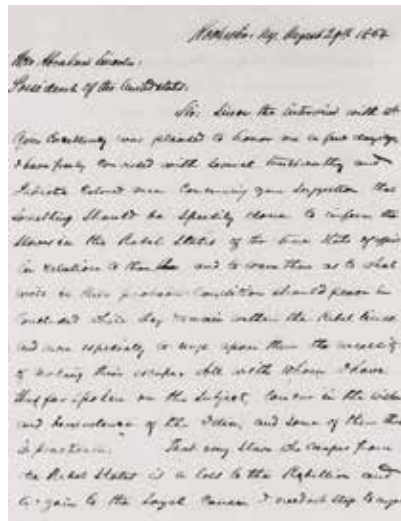 Rochester. N.Y. August 29th 1864
Hon Abraham Lincoln:
President of the United States.
Sir: Since the interview with wh
Your Excellency was pleased to honor me a few days ago
I have freely conversed with several trustworthy and
Colored men concerning your suggestion that
something should be speedily done to inform the
slaves in the Rebel States of the true state of affairs
in relation to them and to warn them as to what
will be their probable condition should peace be
concluded while they remain within the Rebel lines
and more especially to urge upon them the necessity
of making their escape. All with whom I have
thus far spoken on the subject, concur in the wisdom
and benevolence of the Idea, and some of them
practicable. That every slave who escapes from
the Rebel States is a loss to the Rebellion and
a gain to the Loyal Cause I need not stop to argue